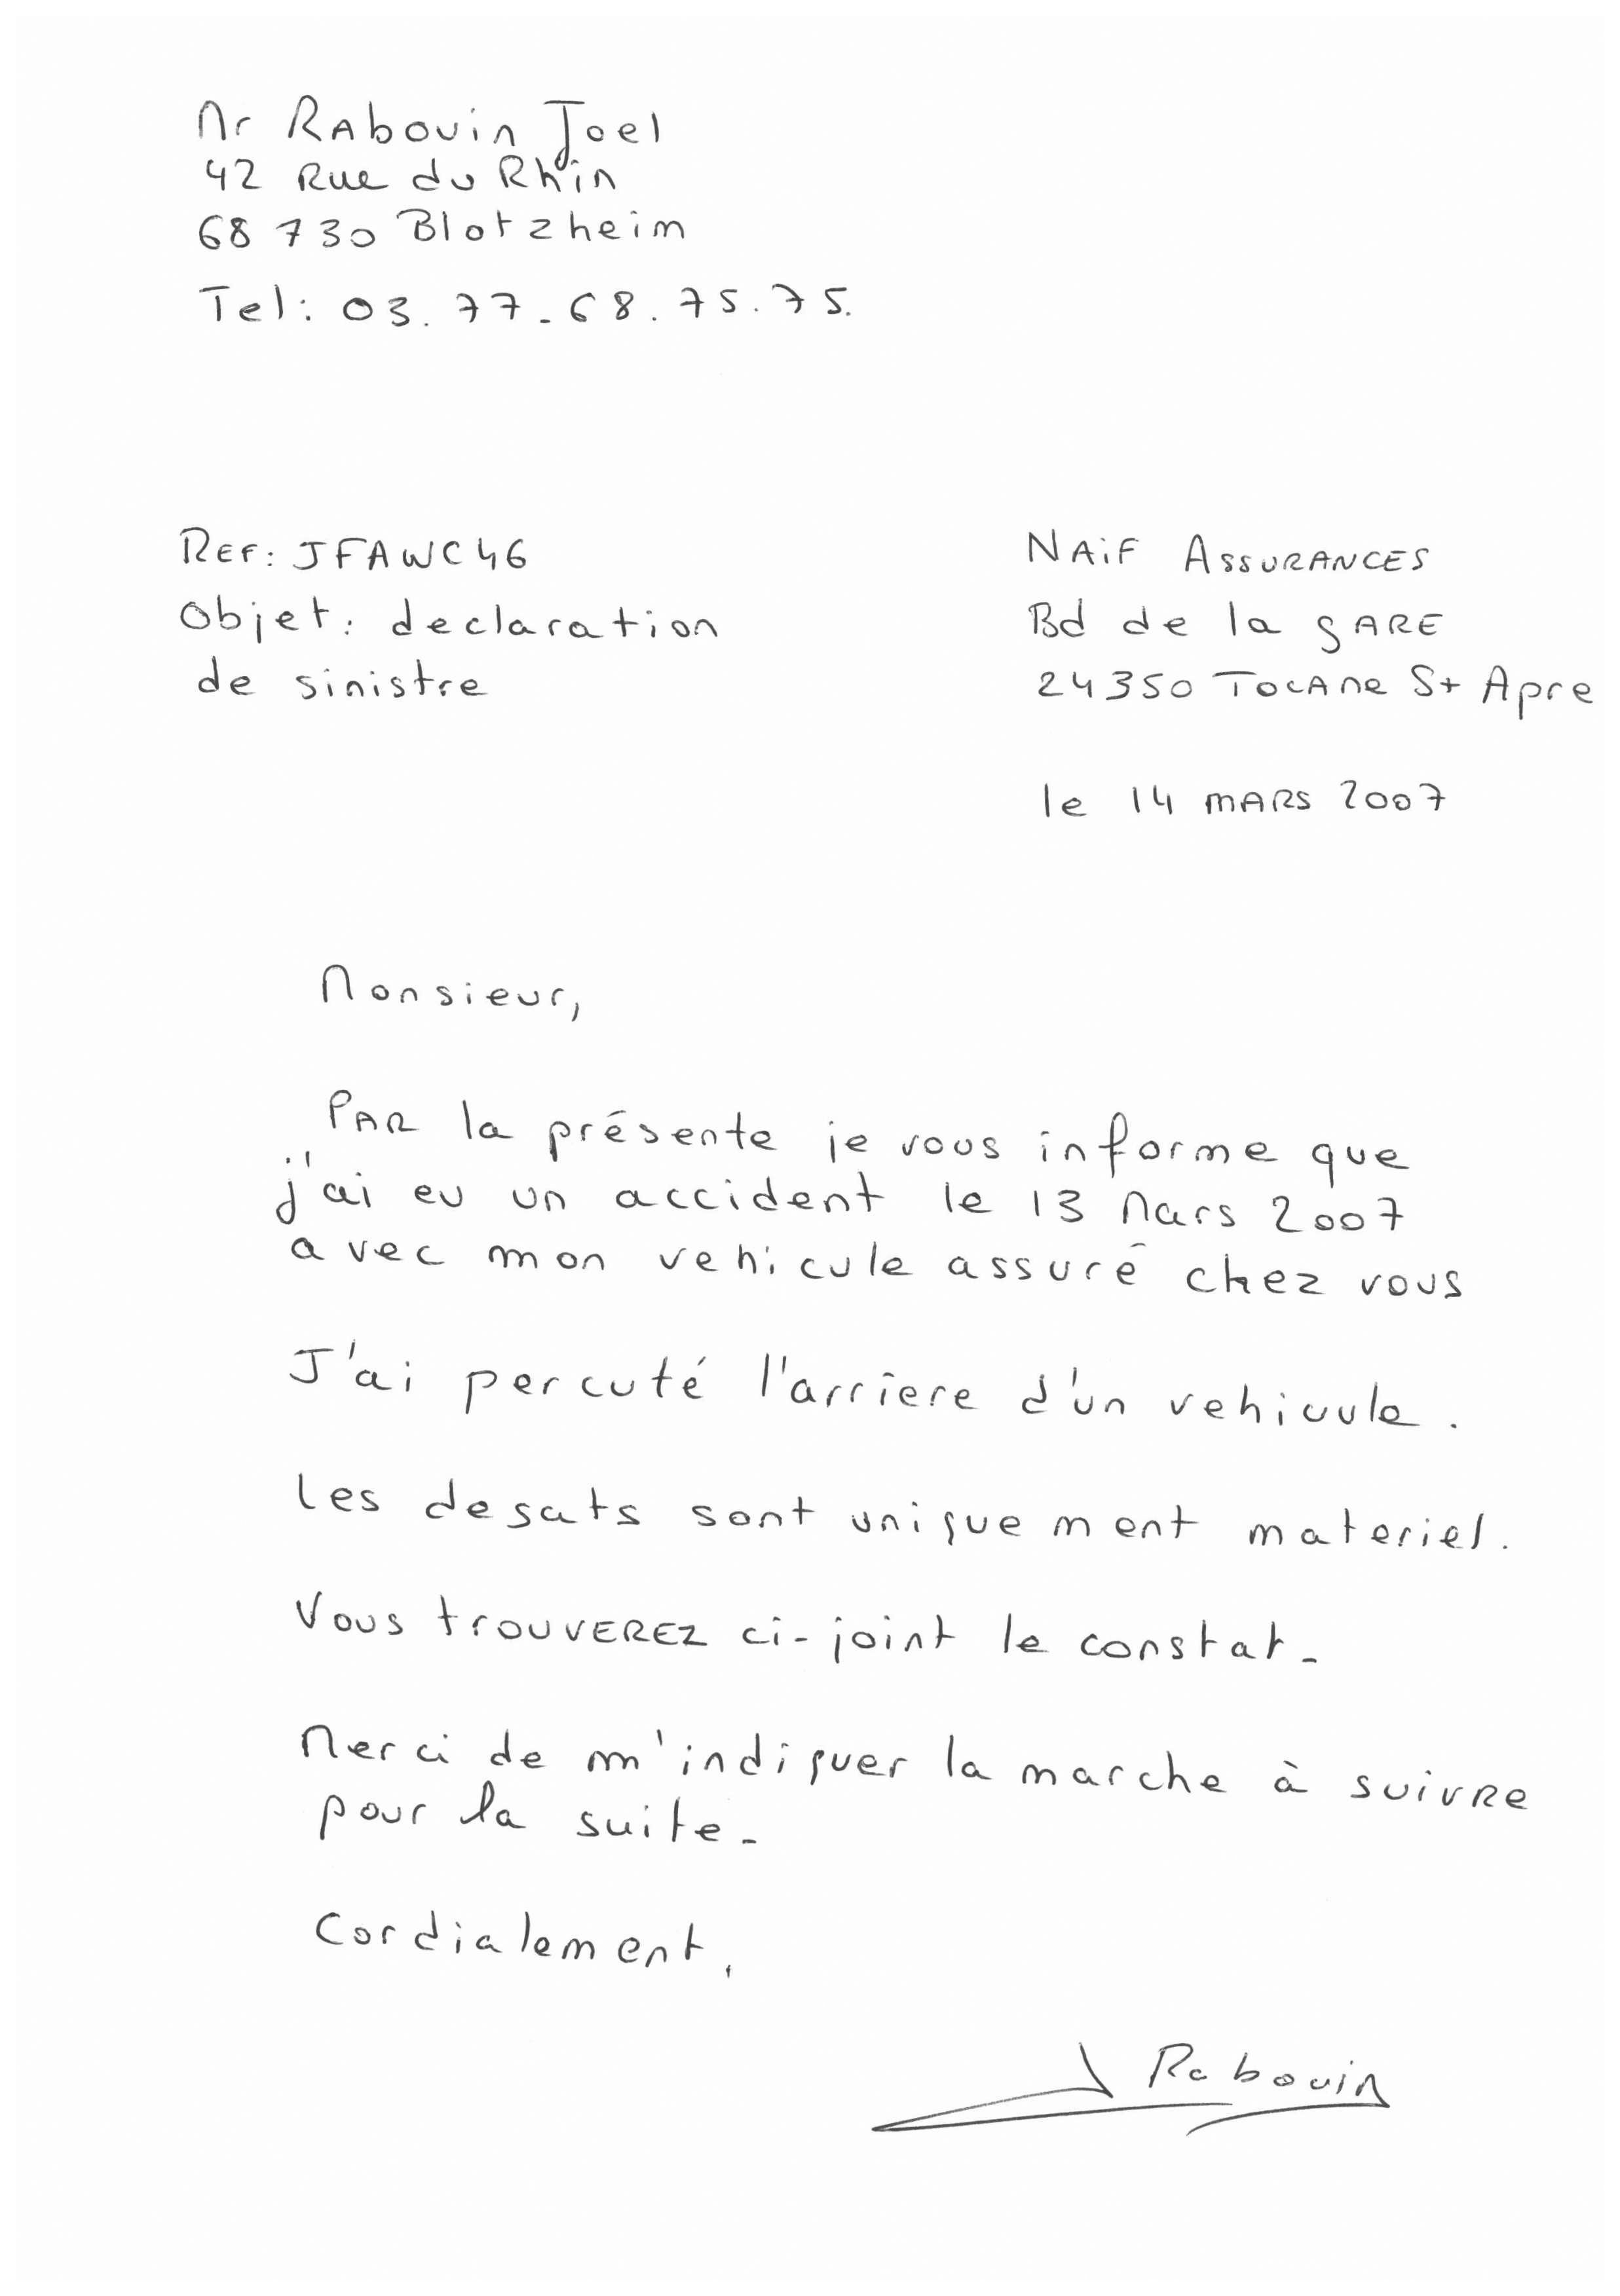 Mr Rabouin Joel
42 Rue du Rhin
68 730 Blotzheim
Tel: 03.77-68.75.75.
REF: JFAWC46
Objet: declaration
de sinistre
NAiF ASSURANCES
Bd de la gARE
24350 TOCANe St Apre
le 14 mARS 2007
Monsieur,
PAR la présente je vous informe que
j'ai eu un accident le 13 Mars 2007
avec mon vehicule assuré chez vous
J'ai percuté l'arriere d'un vehicule.
Les degats sont uniquement materiel.
Vous trouVEREZ ci-joint le constat-
Merci de m'indiquer la marche à suivRe
pour la suite-
Cordialement,
J Rabouin